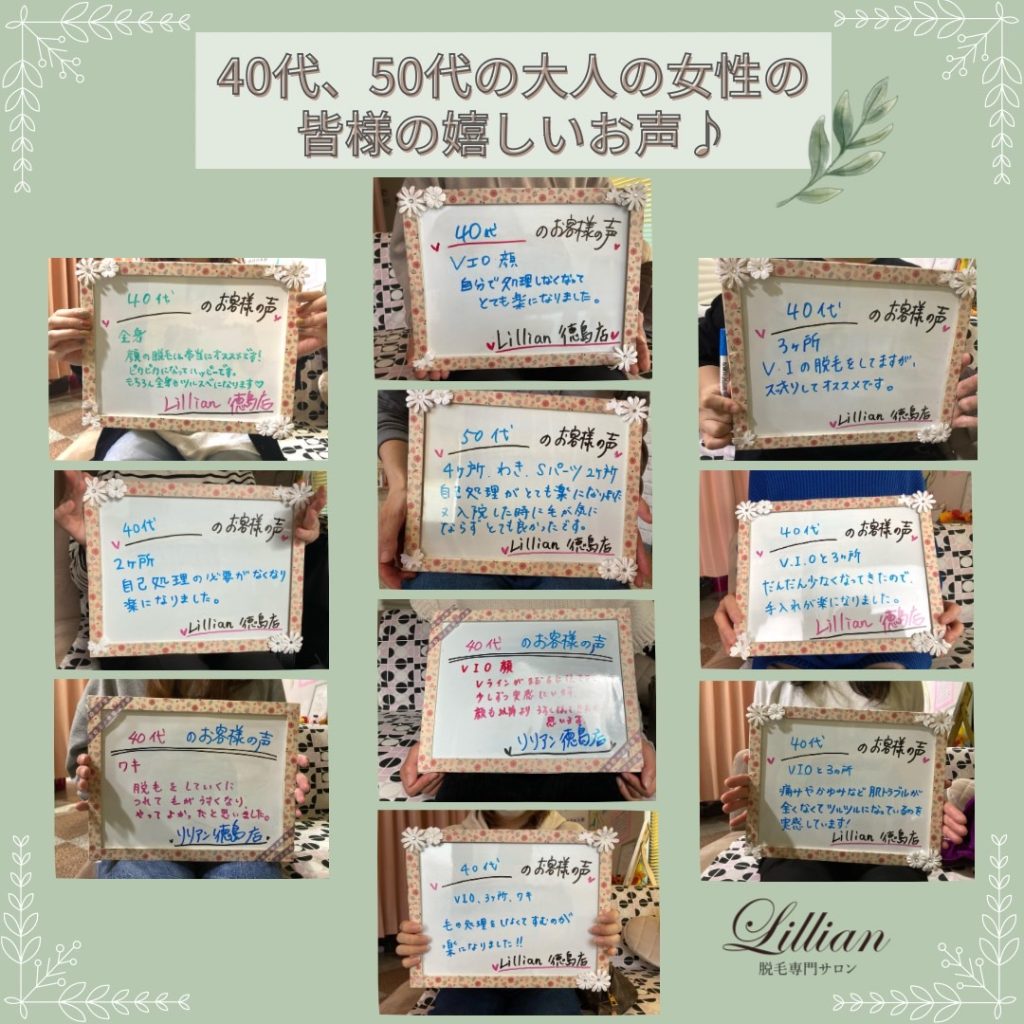 40代、50代の大人の女性の
皆様の嬉しいお声♪
40代 のお客様の声
VIO 顔
自分で処理しなくなって
とても楽になりました。
Lillian 徳島店
40代 のお客様の声
全身
顔の脱毛は本当にオススメです!
ピカピカになってハッピーです。
もちろん全身もツルスベになります♡
Lillian 徳島店
40代 のお客様の声
3ヶ所
V・Iの脱毛をしてますが、
スッキリしてオススメです。
Lillian 徳島店
50代 のお客様の声
4ヶ所、わき、Sパーツ2ヶ所
自己処理がとても楽になりました
又入院した時に毛が気に
ならずとても良かったです。
Lillian 徳島店
40代 のお客様の声
2ヶ所
自己処理の必要がなくなり
楽になりました。
Lillian 徳島店
40代 のお客様の声
V.I.Oと3ヶ所
だんだん少なくなってきたので、
手入れが楽になりました。
Lillian 徳島店
40代 のお客様の声
VIO 顔
Vラインが
少しずつ実感しています。
顔も以前より
思います。
リリアン徳島店
40代 のお客様の声
ワキ
脱毛をしていくに
つれて毛がうすくなり、
やってよかったと思いました。
リリアン徳島店.
40代 のお客様の声
VIOと3ヵ所
痛みやかゆみなど肌トラブルが
全くなくてツルツルになっているのを
実感しています!
Lillian 徳島店
40代 のお客様の声
VIO、3ヶ所、ワキ
毛の処理をしなくてすむのが
楽になりました!!
Lillian 徳島店
Lillian
脱毛専門サロン